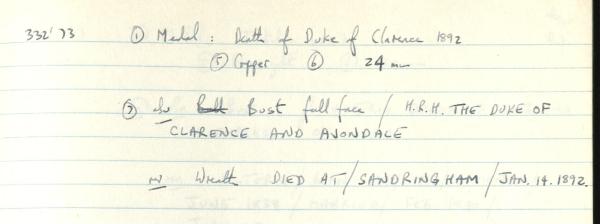 332'73 ① Medal : Death of Duke of Clarence 1892
⑤ Copper ⑥ 24 mm
⑦ obv Bust full face / H.R.H. THE DUKE OF
CLARENCE AND AVONDALE
rv Wreath DIED AT / SANDRINGHAM / JAN. 14. 1892.